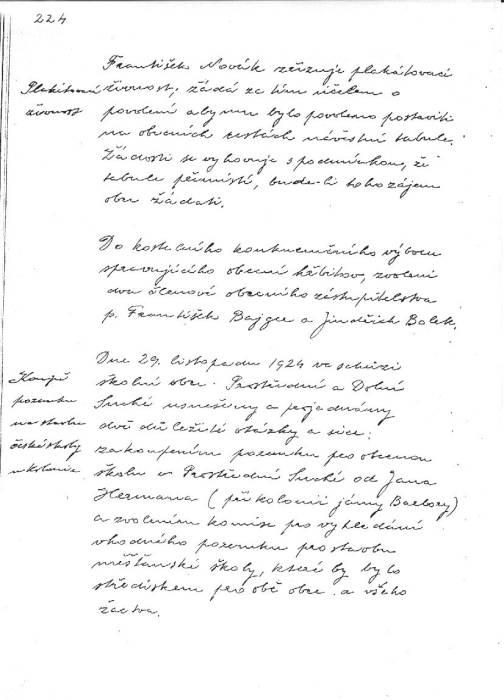 224
František Novák zřizuje plakátovací
Plakátovací
živnost
živnost, žádá za tím účelem o
povolení aby mu bylo povoleno postaviti
na obecních cestách návěstní tabule.
Žádosti se vyhovuje s podmínkou, že
tabule přemístí, bude-li toho zájem
obce žádati.
Do kostelního konkurenčního výboru
spravujícího obecní hřbitov, zvoleni
dva členové obecního zastupitelstva
p. František Bajger a Jindřich Bolek.
Dne 29. listopadu 1924 ve schůzi
Koupě
pozemku
na stavbu
české školy
u kolonie
školní obce Prostřední a Dolní
Suché usneseny a projednány
dvě důležité otázky a sice:
zakoupením pozemku pro obecnou
školu v Prostřední Suché od Jana
Hermana (při kolonii jámy Barbory)
a zvolením komise pro vyhledání
vhodného pozemku pro stavbu
měšťanské školy, které by bylo
střediskem pro obě obce a všeho
žactva.